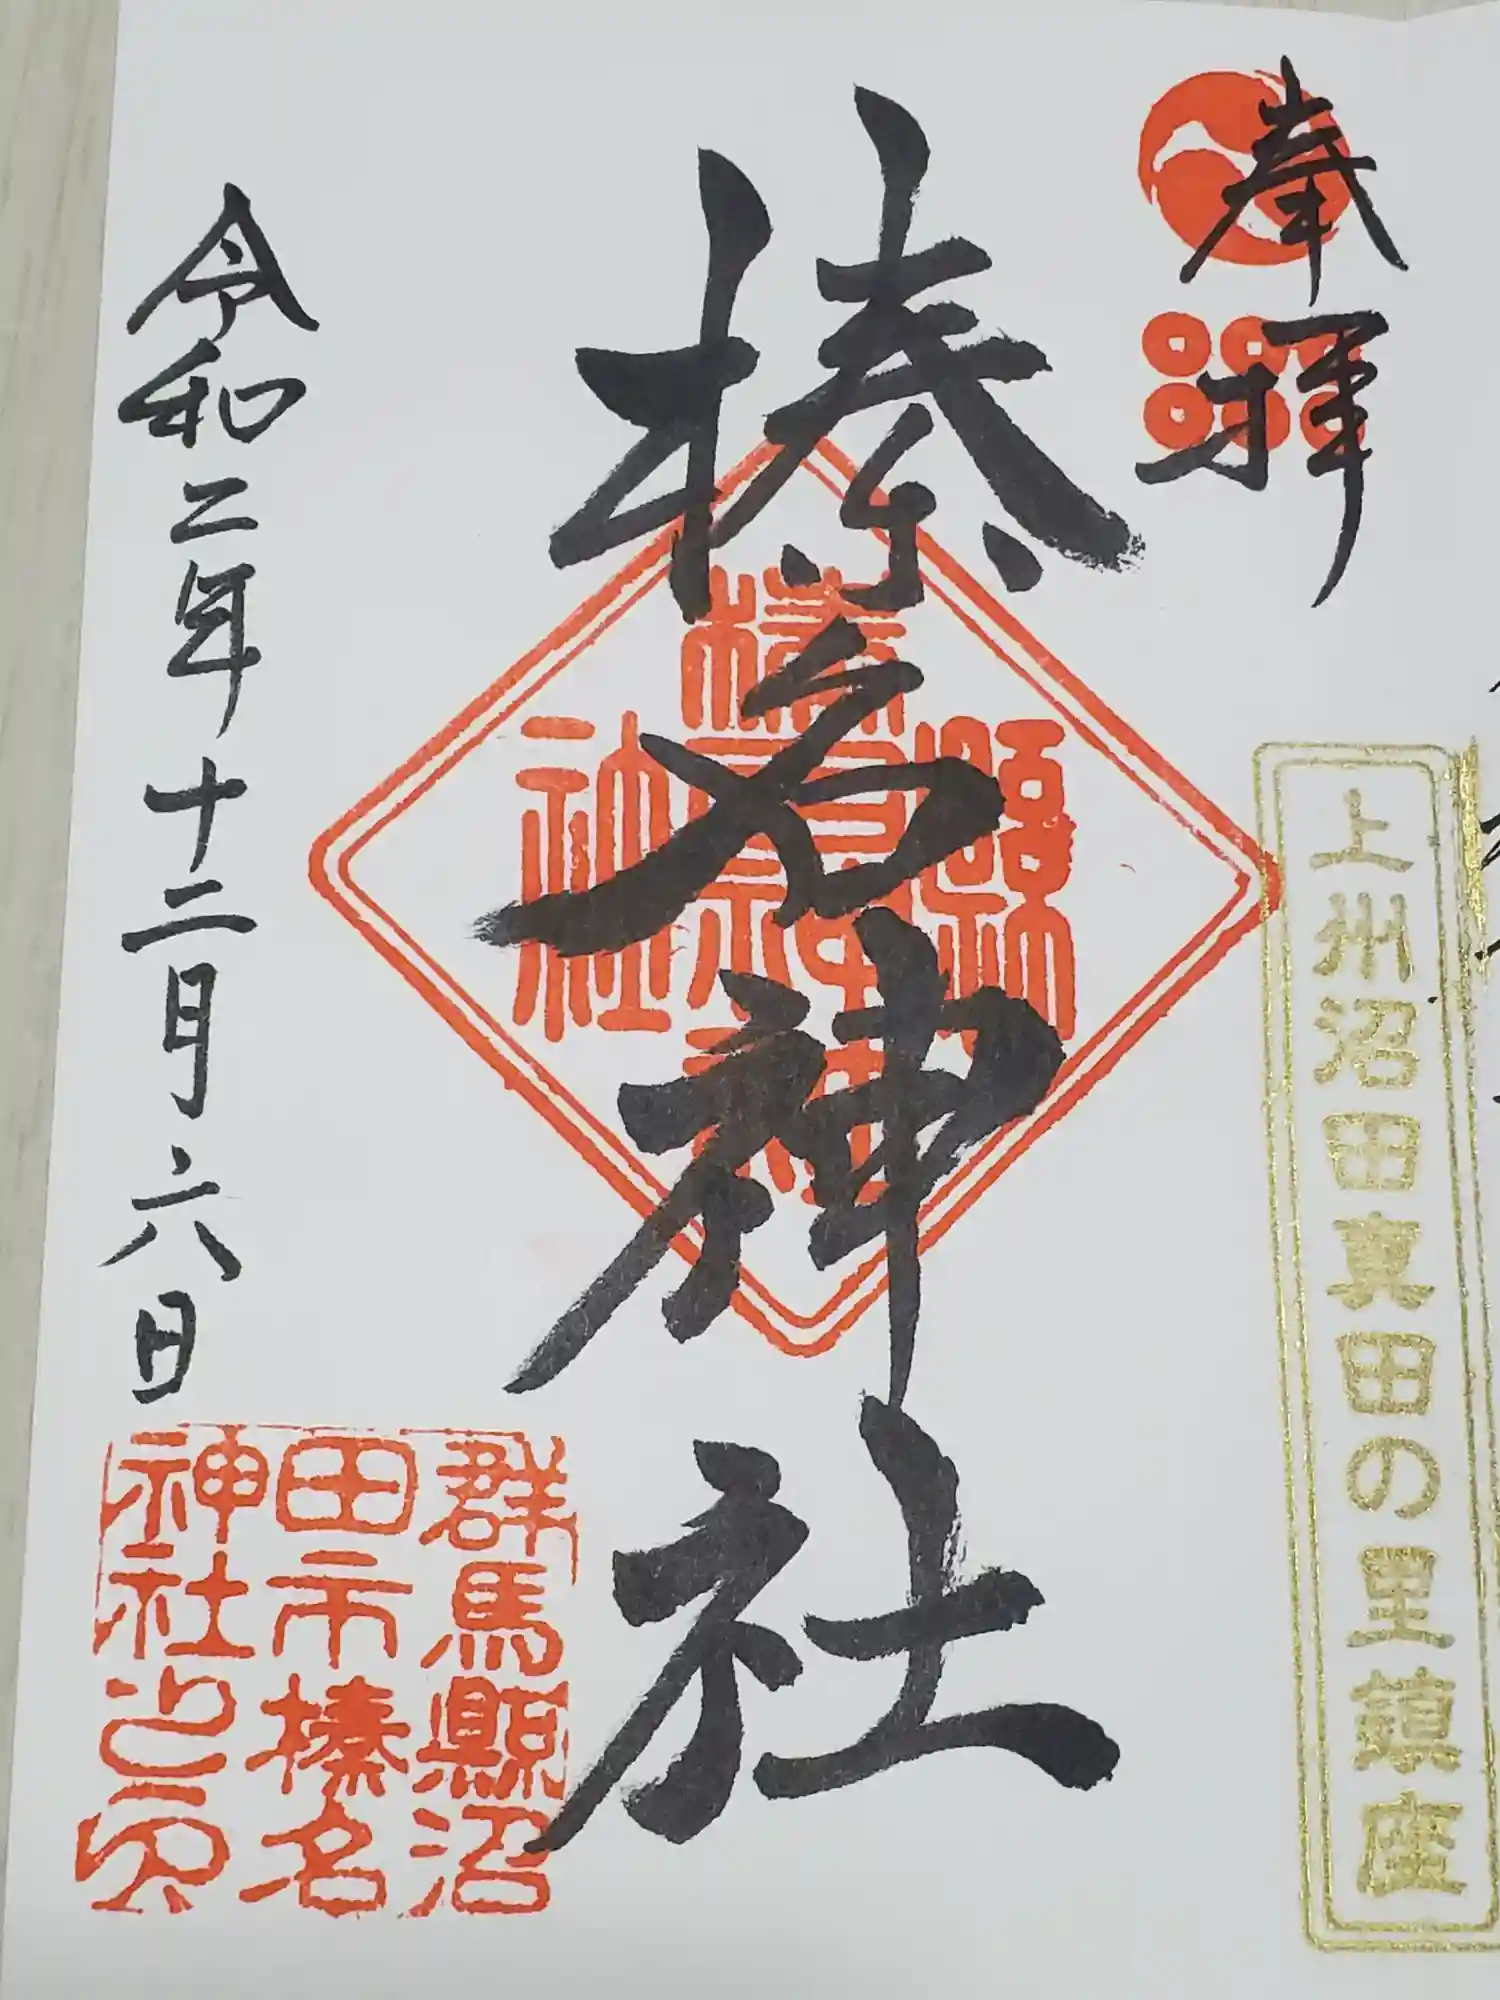 奉拝
上州沼田真田の里鎮座
榛名神社
縣社
榛名神社
令和二年十二月六日
群馬縣沼
田市榛名
神社之印